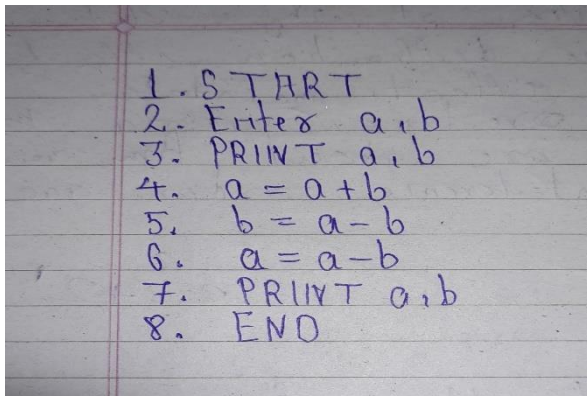 1. START
2. Enter a, b
3. PRINT a, b
4. a = a + b
5. b = a - b
6. a = a - b
7. PRINT a, b
8. END